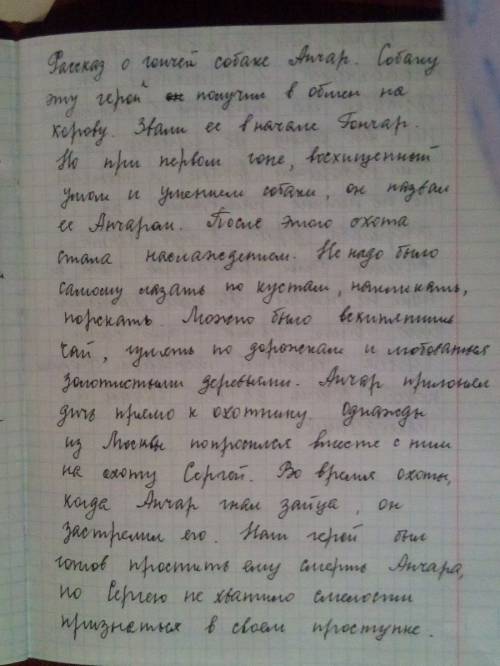 Рассказ о гончей собаке Анчар. Собаку
эту герой получил в обмен на
корову. Звали ее вначале Гончар.
Но при первом гоне, восхищенный
умом и умением собаки, он назвал
ее Анчаром. После этого охота
стала наслаждением. Не надо было
самому лазать по кустам, накликать,
порскать. Можно было вскипятить
чай, гулять по дорожкам и любоваться
золотистыми деревьями. Анчар пригонял
дичь прямо к охотнику. Однажды
из Москвы попросился вместе с ним
на охоту Сергей. Во время охоты,
когда Анчар гнал зайца, он
застрелил его. Наш герой был
готов простить ему смерть Анчара,
но Сергею не хватило смелости
признаться в своем проступке.